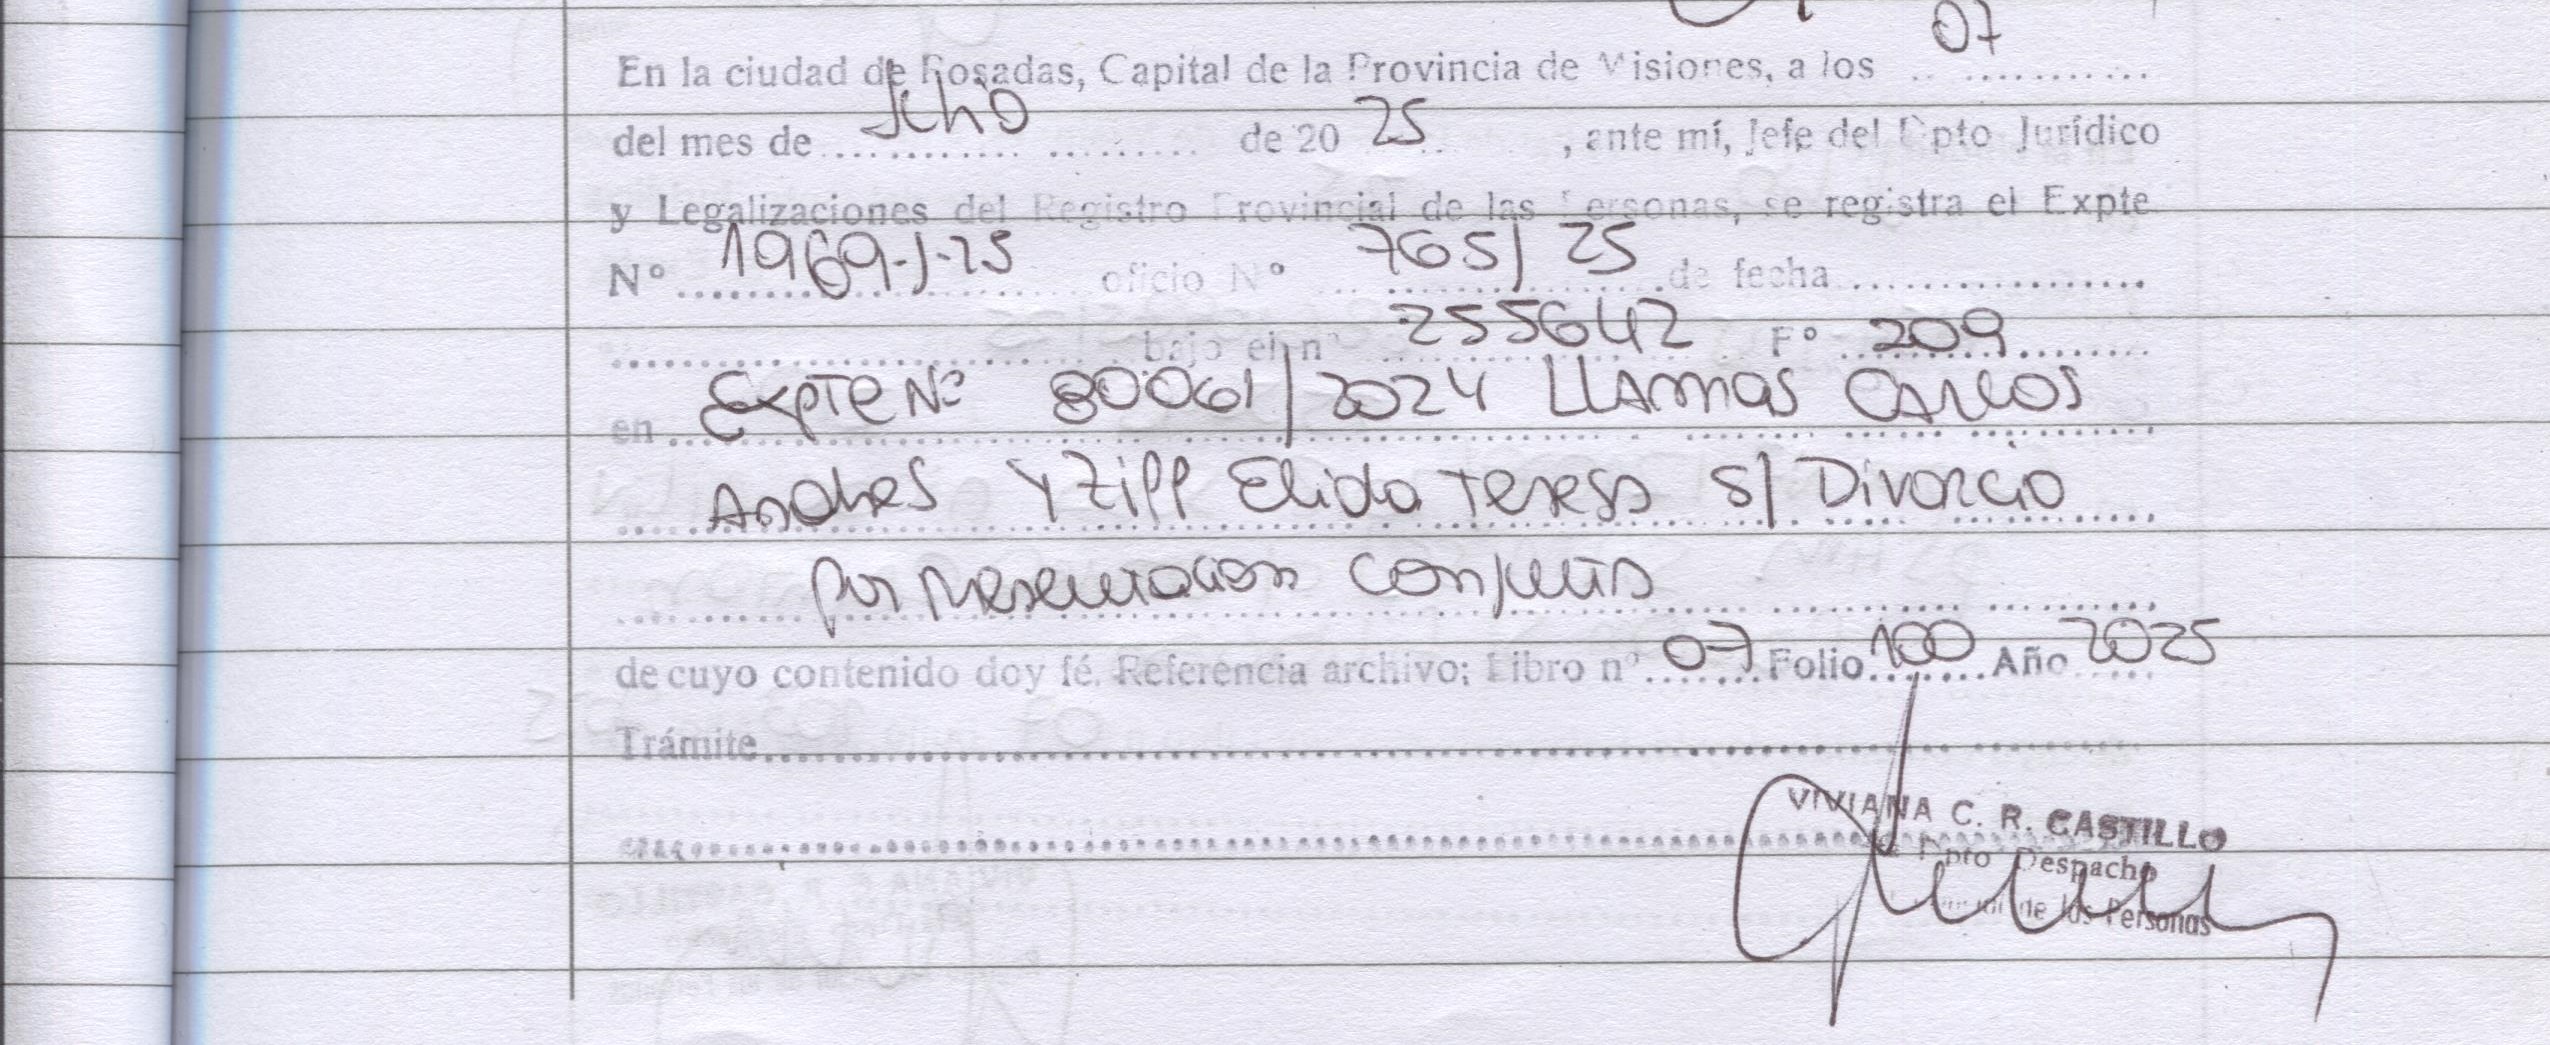 07
En la ciudad de Posadas, Capital de la Provincia de Misiones, a los ............
del mes de Julio de 20 25 , ante mí, Jefe del Dpto Jurídico
y Legalizaciones del Registro Provincial de las Personas, se registra el Expte
Nº 1969-J-25 oficio Nº 765/25 de fecha ..................
bajo el nº 255642 Fº 209
en Expte Nº 80061/2024 LLAMAS CARLOS
Andres Y Ziff Elida Teresa S/ Divorcio
por presentacion conjunta
de cuyo contenido doy fé. Referencia archivo; Libro nº 07 Folio 100 Año 2025
Trámite
VIVIANA C. R. CASTILLO
Dpto Despacho
de las Personas